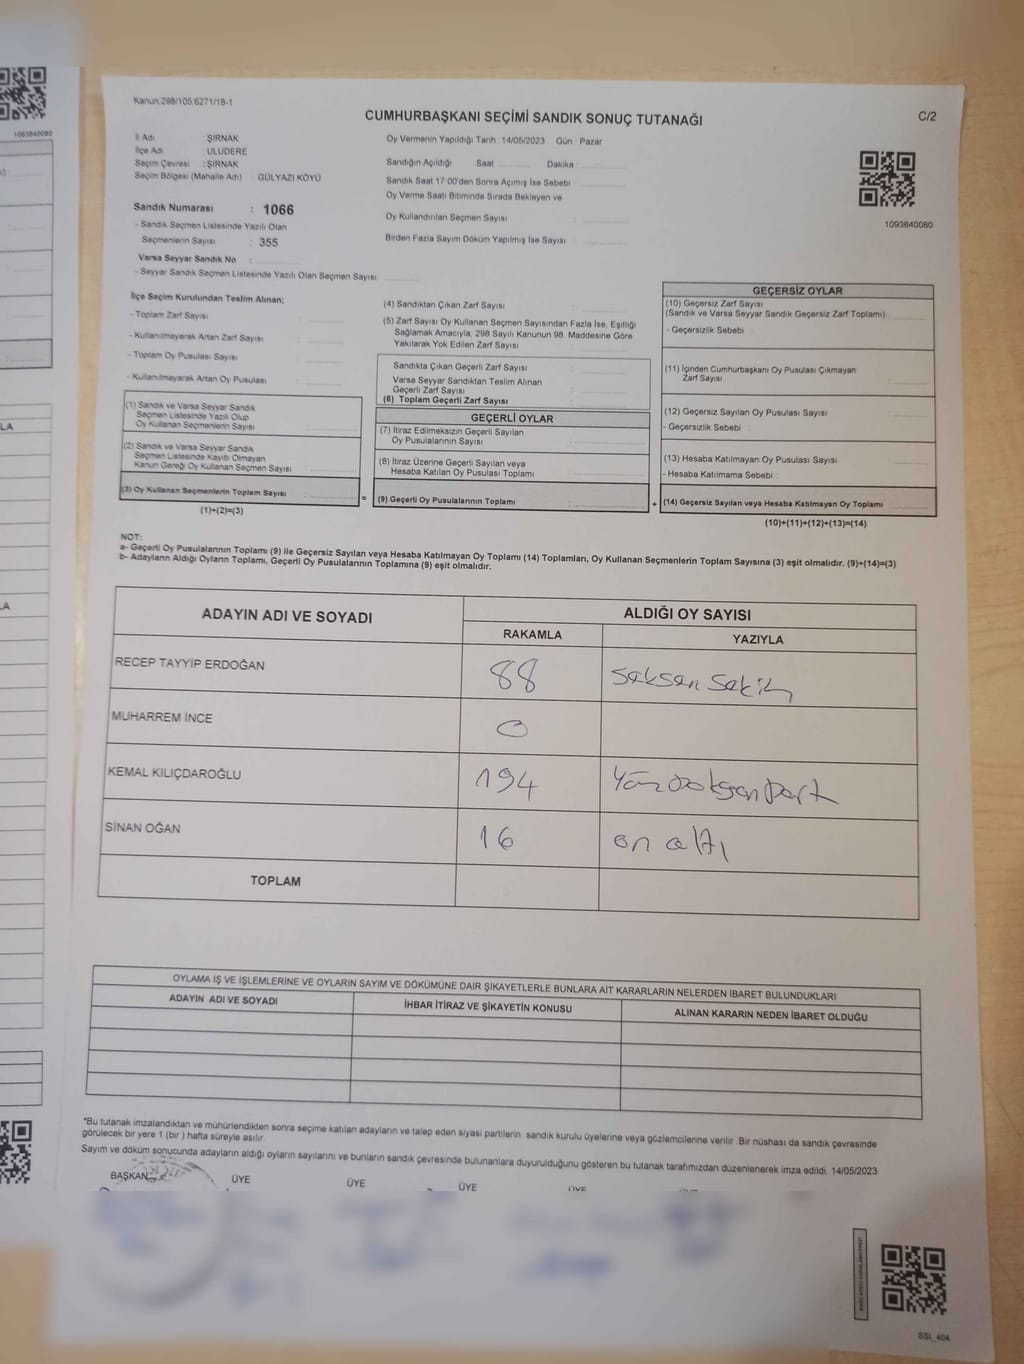 Kanun:298/105;6271/18-1
CUMHURBAŞKANI SEÇİMİ SANDIK SONUÇ TUTANAĞI
C/2
İl Adı : ŞIRNAK
İlçe Adı : ULUDERE
Seçim Çevresi : ŞIRNAK
Seçim Bölgesi (Mahalle Adı) : GÜLYAZI KÖYÜ
Sandık Numarası : 1066
- Sandık Seçmen Listesinde Yazılı Olan
Seçmenlerin Sayısı : 355
Varsa Seyyar Sandık No :
- Seyyar Sandık Seçmen Listesinde Yazılı Olan Seçmen Sayısı
Oy Vermenin Yapıldığı Tarih :14/05/2023 Gün : Pazar
Sandığın Açıldığı Saat Dakika
Sandık Saat 17:00'den Sonra Açımış İse Sebebi
Oy Verme Saati Bitiminde Sırada Bekleyen ve
Oy Kullandırılan Seçmen Sayısı
Birden Fazla Sayım Döküm Yapılmış İse Sayısı
1093840080
1083840080
İlçe Seçim Kurulundan Teslim Alınan;
- Toplam Zarf Sayısı
- Kullanılmayarak Artan Zarf Sayısı
- Toplam Oy Pusulası Sayısı
- Kullanılmayarak Artan Oy Pusulası
(1) Sandık ve Varsa Seyyar Sandık
Seçmen Listesinde Yazılı Olup
Oy Kullanan Seçmenlerin Sayısı
(2) Sandık ve Varsa Seyyar Sandık
Seçmen Listesinde Kayıtlı Olmayan
Kanun Gereği Oy Kullanan Seçmen Sayısı
(3) Oy Kullanan Seçmenlerin Toplam Sayısı
(1)+(2)=(3)
=
(4) Sandıktan Çıkan Zarf Sayısı
(5) Zarf Sayısı Oy Kullanan Seçmen Sayısından Fazla İse, Eşitliği
Sağlamak Amacıyla, 298 Sayılı Kanunun 98. Maddesine Göre
Yakılarak Yok Edilen Zarf Sayısı
Sandıkta Çıkan Geçerli Zarf Sayısı
Varsa Seyyar Sandıktan Teslim Alınan
Geçerli Zarf Sayısı
(6) Toplam Geçerli Zarf Sayısı
GEÇERLİ OYLAR
(7) İtiraz Edilmeksizin Geçerli Sayılan
Oy Pusulalarının Sayısı
(8) İtiraz Üzerine Geçerli Sayılan veya
Hesaba Katılan Oy Pusulası Toplamı
(9) Geçerli Oy Pusulalarının Toplamı
+
GEÇERSİZ OYLAR
(10) Geçersiz Zarf Sayısı
(Sandık ve Varsa Seyyar Sandık Geçersiz Zarf Toplamı)
- Geçersizlik Sebebi
(11) İçinden Cumhurbaşkanı Oy Pusulası Çıkmayan
Zarf Sayısı
(12) Geçersiz Sayılan Oy Pusulası Sayısı
- Geçersizlik Sebebi
(13) Hesaba Katılmayan Oy Pusulası Sayısı
- Hesaba Katılmama Sebebi
(14) Geçersiz Sayılan veya Hesaba Katılmayan Oy Toplamı
(10)+(11)+(12)+(13)=(14)
NOT:
a- Geçerli Oy Pusulalarının Toplamı (9) ile Geçersiz Sayılan veya Hesaba Katılmayan Oy Toplamı (14) Toplamları, Oy Kullanan Seçmenlerin Toplam Sayısına (3) eşit olmalıdır. (9)+(14)=(3)
b- Adayların Aldığı Oyların Toplamı, Geçerli Oy Pusulalarının Toplamına (9) eşit olmalıdır.
ADAYIN ADI VE SOYADI
ALDIĞI OY SAYISI
RAKAMLA YAZIYLA
RECEP TAYYİP ERDOĞAN 88 Seksen Sekiz
MUHARREM İNCE 0
KEMAL KILIÇDAROĞLU 194 Yüz Doksan Dört
SİNAN OĞAN 16 on altı
TOPLAM
OYLAMA İŞ VE İŞLEMLERİNE VE OYLARIN SAYIM VE DÖKÜMÜNE DAİR ŞİKAYETLERLE BUNLARA AİT KARARLARIN NELERDEN İBARET BULUNDUKLARI
ADAYIN ADI VE SOYADI
İHBAR İTİRAZ VE ŞİKAYETİN KONUSU
ALINAN KARARIN NEDEN İBARET OLDUĞU
*Bu tutanak imzalandıktan ve mühürlendikten sonra seçime katılan adayların ve talep eden siyasi partilerin sandık kurulu üyelerine veya gözlemcilerine verilir. Bir nüshası da sandık çevresinde
görülecek bir yere 1 (bir) hafta süreyle asılır.
Sayım ve döküm sonucunda adayların aldığı oyların sayılarını ve bunların sandık çevresinde bulunanlara duyurulduğunu gösteren bu tutanak tarafımızdan düzenlenerek imza edildi. 14/05/2023
BAŞKAN ÜYE ÜYE ÜYE ÜYE
SSI_404